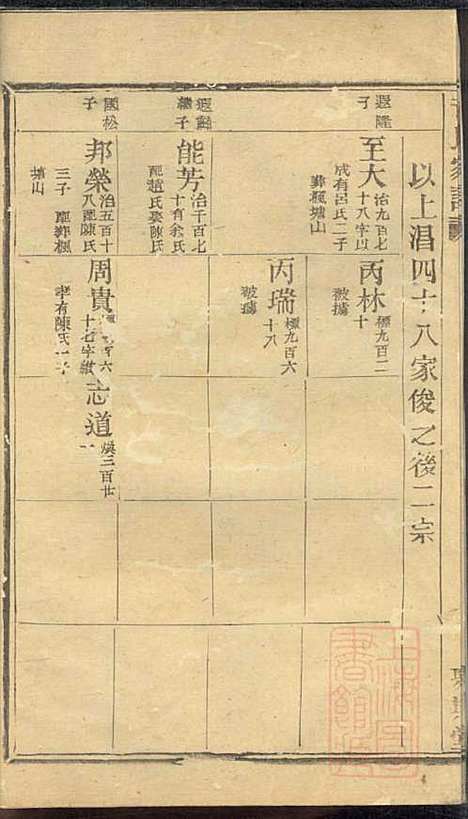 以上淐四十八家俊之後二宗
遐隆
子
至大
治九百七
十八字以
成有呂氏二子
葬楓塘山
丙林
標九百二
十
被擄
丙瑞
標九百六
十八
被擄
遐
繼子
能芳
治千百七
十育余氏
配趙氏娶陳氏
國松
子
邦榮
治五百十
八配陳氏
三子
葬楓
塘山
周貴
六
十七字
孝有陳氏一子
志道
煥三百廿
一